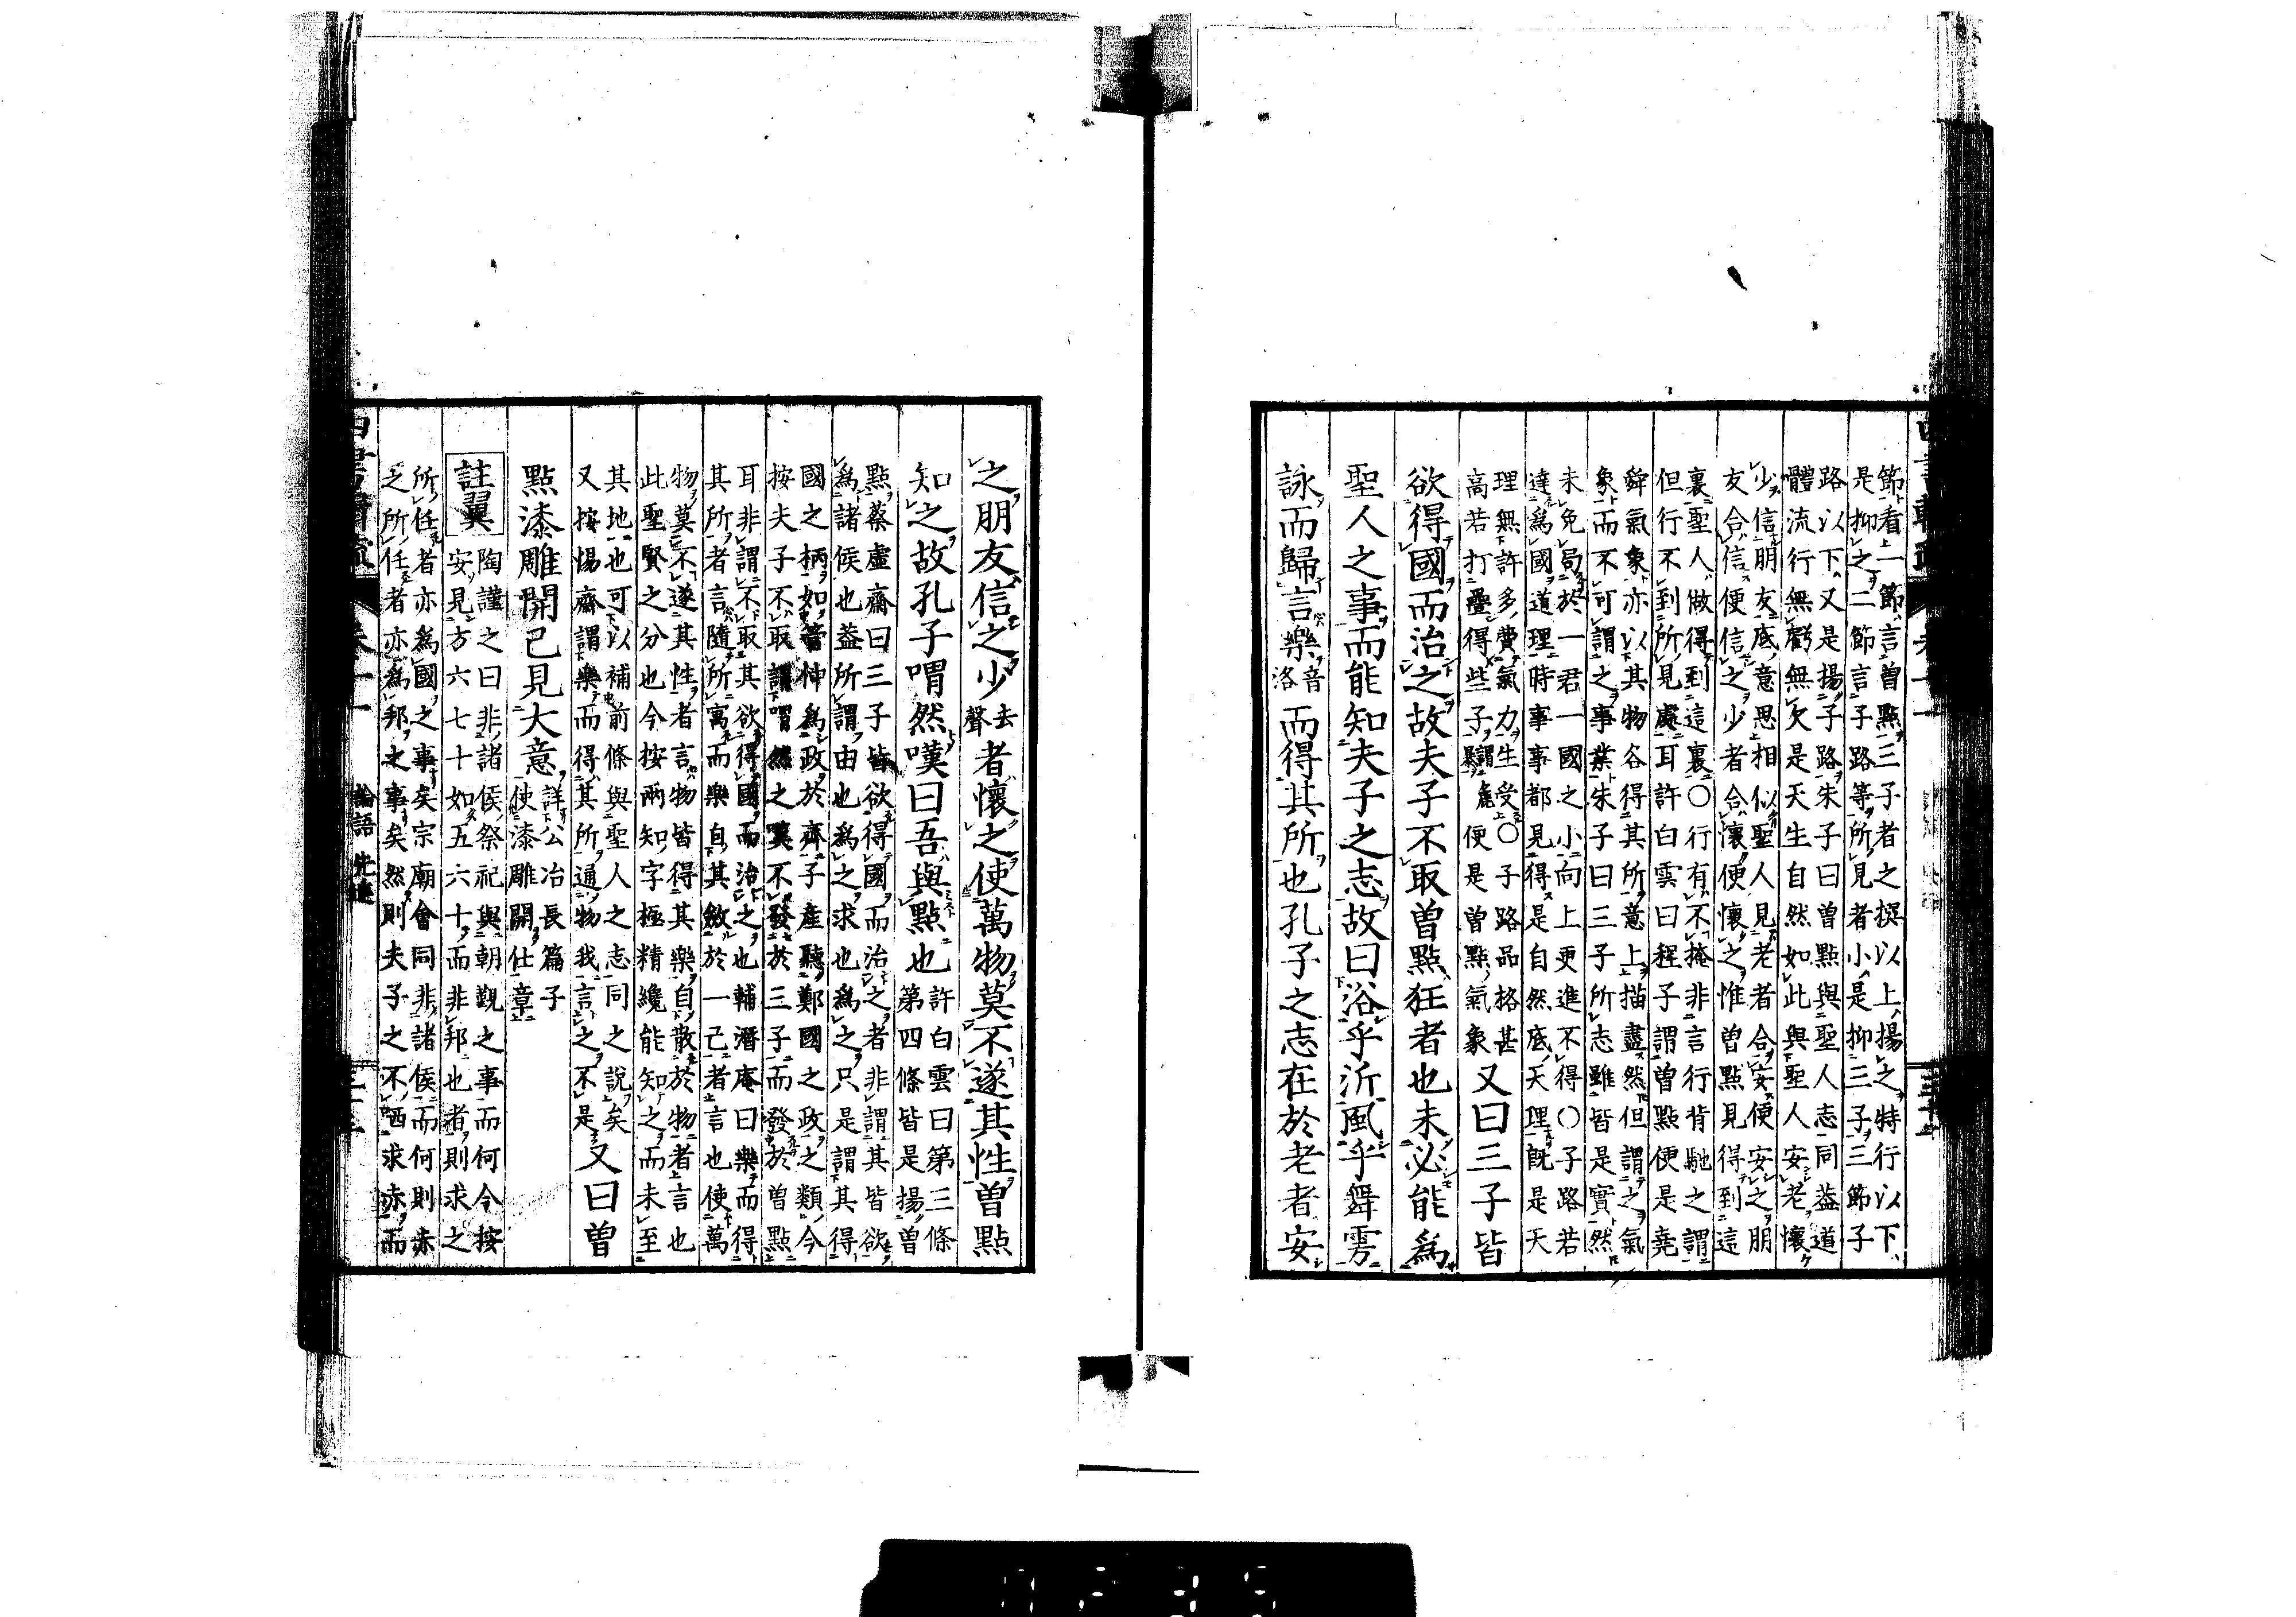 節看上一節言曾點三子者之撰以上揚之特行以下
是抑之二節言子路等所見者小是抑三子三節子
路以下又是揚子路朱子曰曾點與聖人志同葢道
體流行無虧無欠是天生自然如此與聖人安老懷
少信朋友底意思相似聖人見老者合安便安之朋
友合信便信之少者合懷便懷之惟曾點見得到這
裏聖人做得到這裏〇行有不掩非言行背馳之謂
但行不到所見處耳許白雲曰程子謂曾點便是堯
舜氣象亦以其物各得其所意上描盡然但謂之氣
象而不可謂之事業朱子曰三子所志雖皆是實然
未免局於一君一國之小向上更進不得〇子路若
達爲國道理時事事都見得是自然底天理旣是天
理無許多費氣力生受〇子路品格甚
高若打疊得些子謂麁暴便是曾點氣象
又曰三子皆
欲得國而治之故夫子不取曾點狂者也未必能爲
聖人之事而能知夫子之志故曰浴乎沂風乎舞雩
詠而歸言樂音洛而得其所也孔子之志在於老者安
之朋友信之少去聲者懷之使萬物莫不遂其性曾點
知之故孔子喟然嘆曰吾與點也
許白雲曰第三條
第四條皆是揚曾
點蔡虛齋曰三子皆欲得國而治之者非謂其皆欲
爲諸侯也葢所謂由也爲之求也爲之只是謂其得
國之柄如管仲爲政於齊子產聽鄭國之政之類今
按夫子不取謂喟然之嘆不發於三子而發於曾點
耳非謂不取其欲得國而治之也輔潛庵曰樂而得
其所者言隨所寓而樂自其斂於一己者言也使萬
物莫不遂其性者言物皆得其樂自散於物者言也
此聖賢之分也今按兩知字極精纔能知之而未至
其地也可以補前條與聖人之志同之說矣
又按惕齋謂樂而得其所通物我言之不是
又曰曾
點漆雕開已見大意
詳公冶長篇子
使漆雕開仕章
註翼
陶謹之曰非諸侯祭祀與朝覲之事而何今按
安見方六七十如五六十而非邦也者則求之
所任者亦爲國之事矣宗廟會同非諸侯而何則赤
之所任者亦爲邦之事矣然則夫子之不哂求赤而
論語 先進